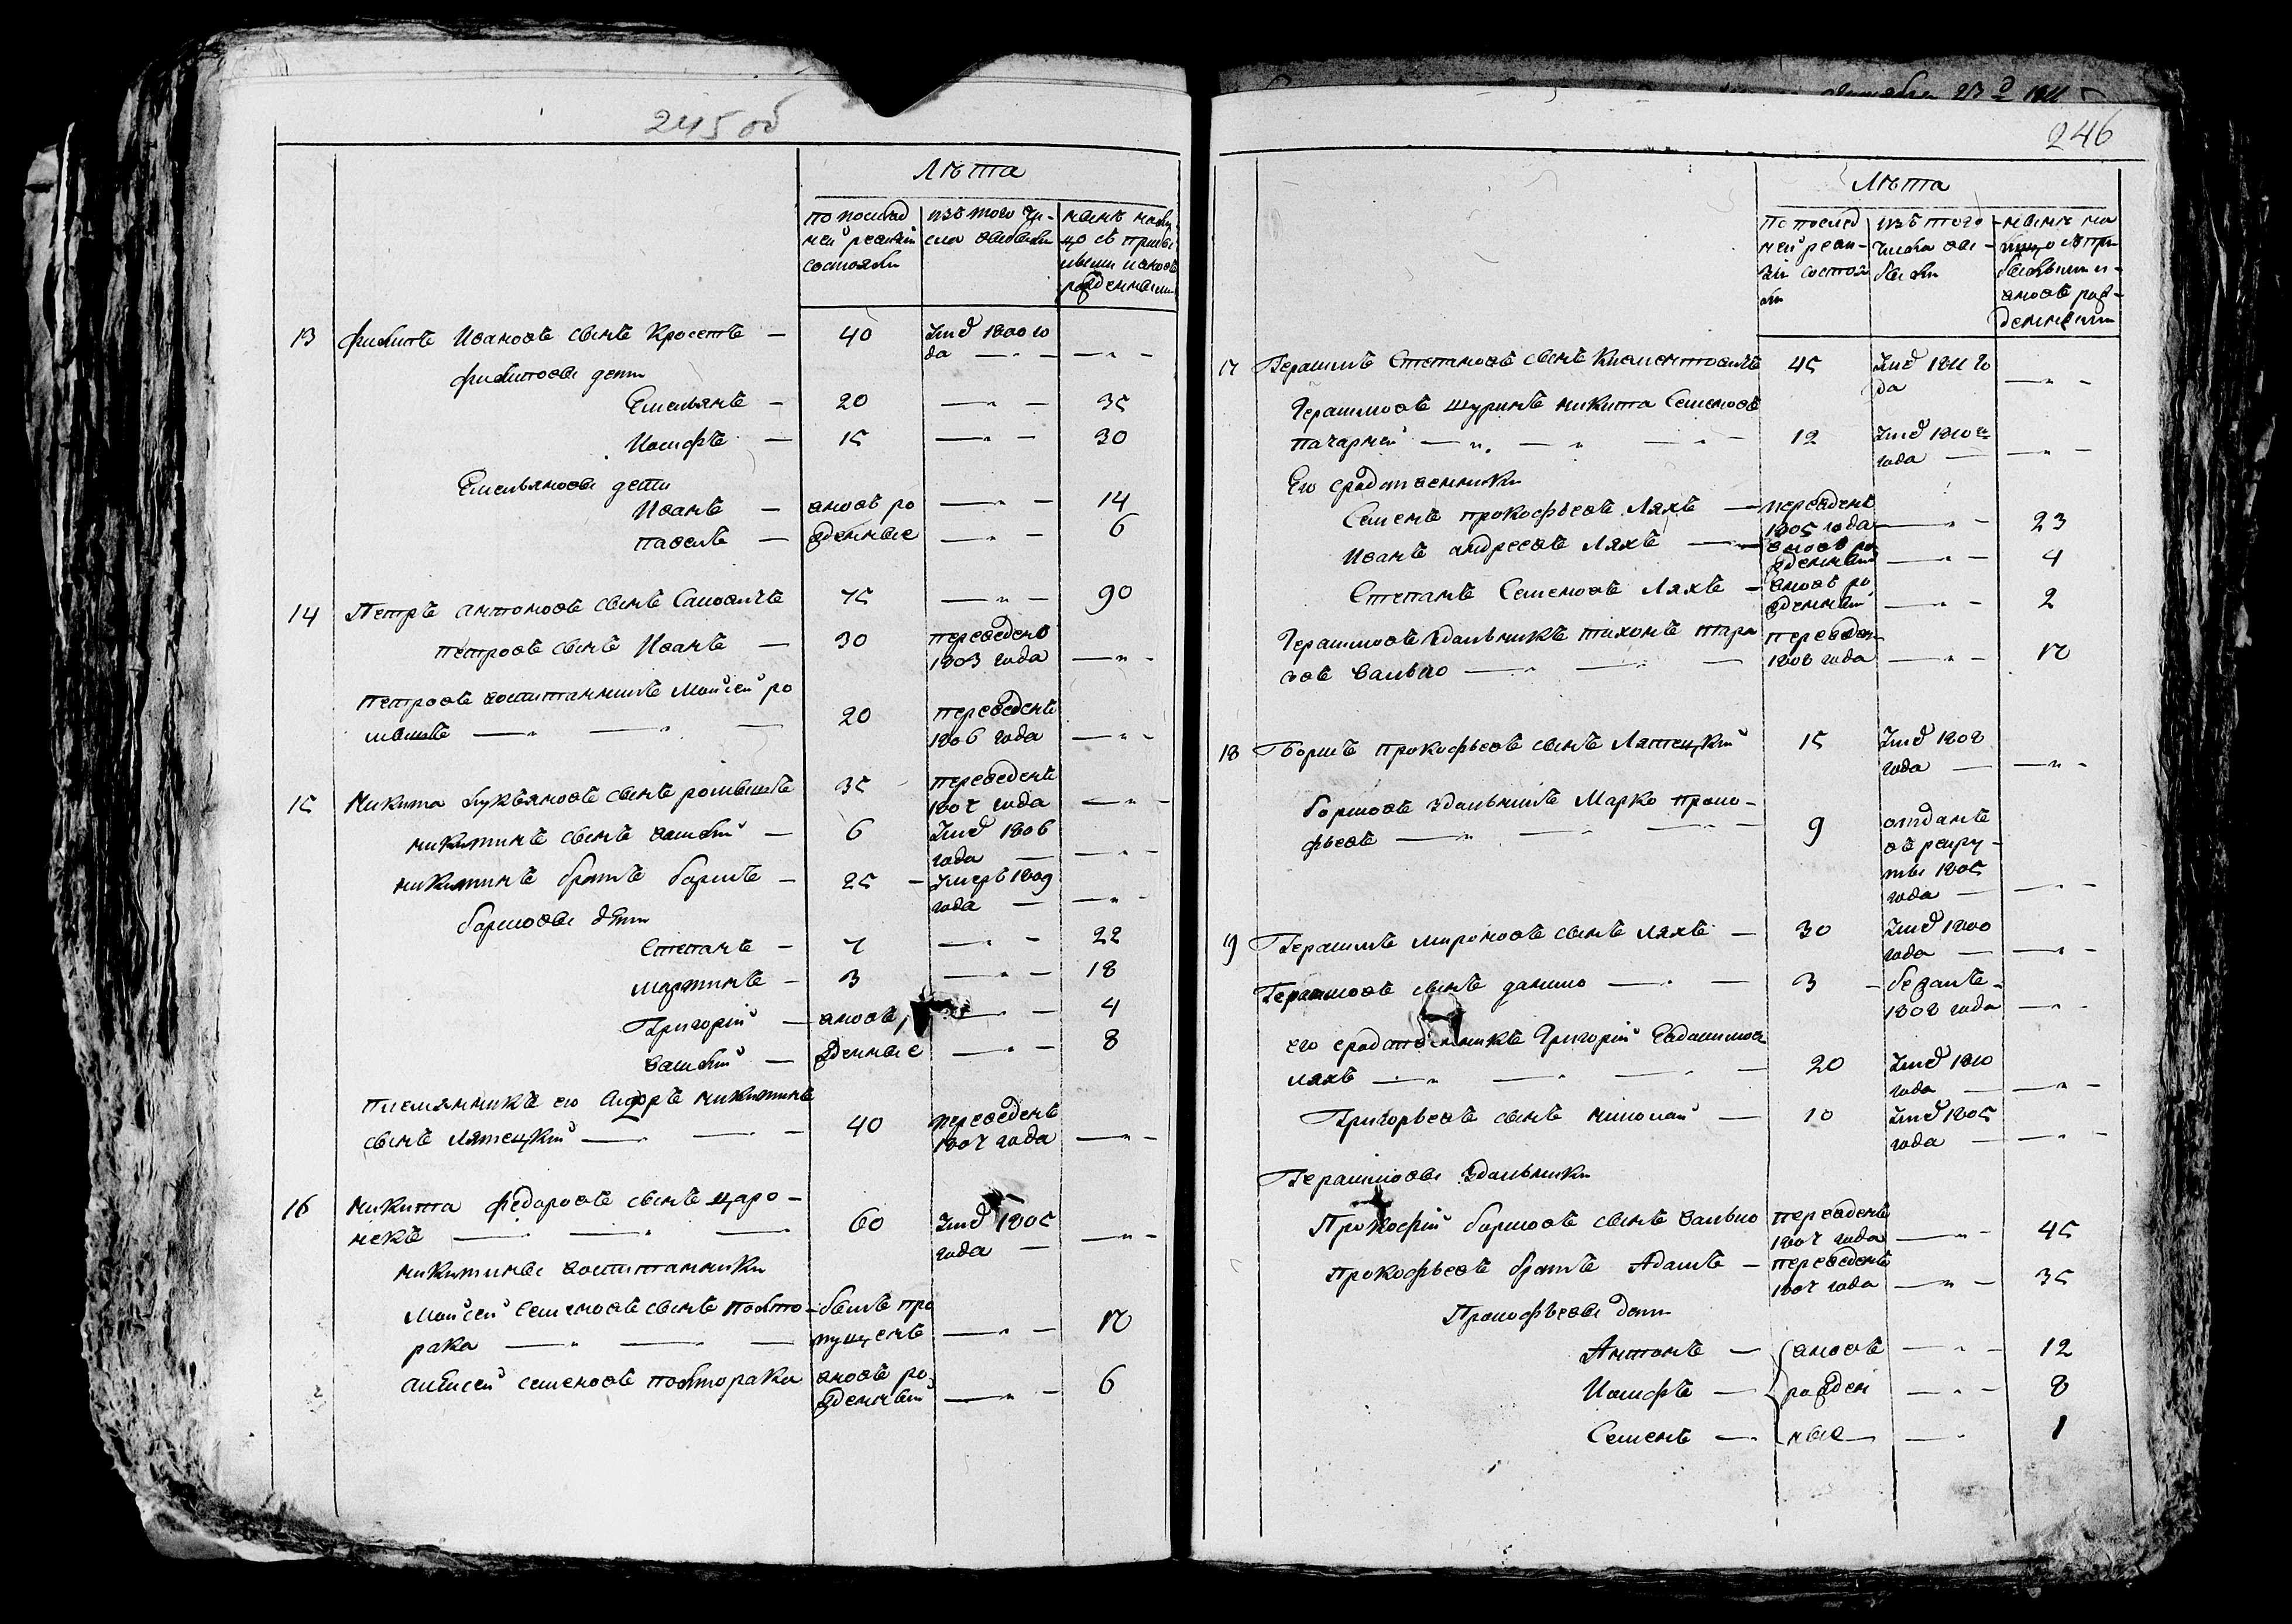 245 об
Лѣта
по послѣд
ней ревизіи
состояли
изъ того чи-
сла выбыли
нынѣ на лицо съ прибы
рожденными
13 Филипъ Ивановъ сынъ 40 Умер 1800 го
да
Филиповы дети
Емельянъ 20 35
Иосифъ 15 30
Емельяновы дети
Иванъ вновь ро 14
Павелъ жденные 6
14 Петръ Антоновъ сынъ 75 90
Петровъ сынъ Иванъ 30 переведенъ
1803 года
Петровъ воспитанникъ Моисей ро
20 переведенъ
1806 года
15 Микита Лукьяновъ сынъ 35 переведенъ
1807 года
Микитинъ сынъ Василий 6 Умер 1806
года
Микитинъ братъ Борисъ 25 Умеръ 1809
года
Борисовы дѣти
Степанъ 7 22
Мартинъ 3 18
Григорій вновь 4
Василий жденные 8
племянникъ его Сидоръ Микитинъ
сынъ Лятецкий 40 переведенъ
1807 года
16 Микита Федоровъ сынъ Царо-
некъ 60 Умер 1805
года
Микитины воспитанники
Моисей Семеновъ сынъ Полто- былъ про
рака пущенъ 10
Алексей Семеновъ Полторака вновь ро
жденный 6
246
Лѣта
По послѣд
ней реви-
зіи состоя
ли
изъ того
числа вы-
были
нынѣ на
лицо съ при
былыми и
вновь рож-
денными
17 Герасимъ Степановъ сынъ 45 Умер 1811 го
да
Герасимовъ шуринъ Микита Семеновъ
12 Умер 1810
года
Его сродственники
Семенъ Прокофьевъ Ляхъ переведенъ
1805 года 23
Иванъ Андреевъ Ляхъ вновь ро
жденный 4
Степанъ Семеновъ Ляхъ вновь ро
жденный 2
Герасимовъ здольникъ Тихонъ Тара
совъ переведен
1808 года
18 Борисъ Прокофьевъ сынъ Лятецкий 15 Умер 1808
года
Борисовъ здольникъ Марко Проко-
фьевъ 9 отданъ
въ рекру-
ты 1805
года
19 Герасимъ Мироновъ сынъ Ляхъ 30 Умер 1800
года
Герасимовъ сынъ Данило 3 бежалъ
1808 года
его сродственникъ Григорій
Ляхъ 20 Умер 1810
года
Григорьевъ сынъ Николай 10 Умер 1805
года
Герасимовы здольники
Прокофий Борисовъ сынъ переведенъ
1807 года 45
Прокофьевъ братъ Адамъ переведенъ
1807 года 35
Прокофьевы дети
Антонъ вновь 12
Иосифъ рожден 8
Семенъ ные 1